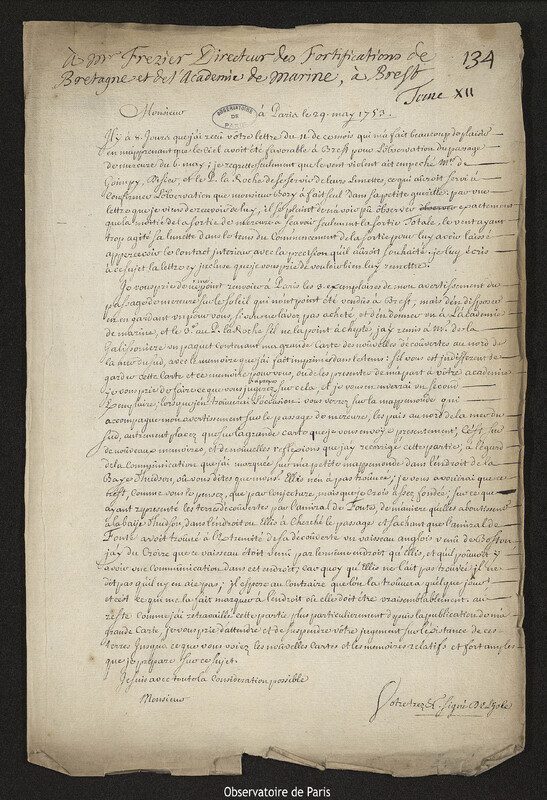 à Mr Frezier Directeur des Fortifications de
Bretagne et de l'Academie de Marine, a Brest
134
Tome XII
OBSERVATOIRE
DE
PARIS
Monsieur à Paris le 29. may 1753.
Il y a 8. Jours que j'ai recu votre lettre du 11. de ce mois qui m'a fait beaucoup de plaisir
en m'apprenant que le Ciel avoit été favorable à Brest pour l'observation du passage
de mercure du 6. may; je regrette seulement que le vent violent ait empeché Mrs. de
Goimpy, et le P. la Roche de se servir de leurs Lunettes, ce qui auroit servi à
Confirmer l'observation que monsieur Bory a fait seul dans sa petite gueritte: par une
lettre que je viens de recevoir de luy, il se plaint de n'avoir pû observer exactement
que la moitié de la sortie de mercure à scavoir seulement la sortie Totale, le vent ayant
trop agité sa lunette dans le tems du Commencement de la sortie pour luy avoir laissé
appercevoir le contact interieur avec la precision qu'il auroit souhaité. je luy ecris
à ce sujet la lettre cy incluse que je vous prie de vouloir bien luy remettre.
Je vous prie de ne point renvoier à Paris les 3. exemplaires de mon avertissement du
passage de mercure sur le soleil qui n'ont point été vendus à Brest, mais d'en disposer
en en gardant un pour vous, si vous ne l'avez pas acheté, et d'en donner un à l'academie
de marine, et le 3e. au P. la Roche s'il ne la point acheté. j'ay remis à Mr. de la
Galissonniere un paquet contenant ma grande Carte des nouvelles decouvertes au nord de
la mer du sud, avec le memoire que j'ai fait imprimer dans le tems: s'il vous est indifferent de
garder cette carte et ce memoire pour vous, ou de les presenter de ma part à votre academie
je vous prie de faire ce que vous jugerez à propos sur cela, et je vous en enverrai un second
Exemplaire, lorsque j'en trouverai l'occasion: vous verrez sur la mappemonde qui
accompagne mon avertissement sur le passage de mercure, les pais au nord de la mer du
sud, autrement placez que sur la grande carte que je vous envoye presentement, C'est sur
de nouveaux memoires, et de nouvelles reflexions que j'ay corrigé cette partie; à l'égard
de la Communication que j'ai marquée sur ma petite mappemonde dans l'endroit de la
Baye d'hudson, où vous dites que monsr. Ellis n'en a pas trouvée; je vous avoüerai que ce
n'est, comme vous le pensez, que par conjecture, mais que je crois assez fondée: sur ce qu'
ayant representé les terres decouvertes par l'amiral de Fonte, de maniere qu'elles aboutissent
à la baye d'hudson, dans l'endroit ou Ellis a cherché le passage et sachant que l'amiral de
Fonte avoit trouvé à l'extremité de sa decouverte un vaisseau anglois venu de Boston
j'ay dû croire que ce vaisseau étoit venu par le meme endroit qu'Ellis, et qu'il pouvoit y
avoir une Communication dans cet endroit; car quoy qu'Ellis ne l'ait pas trouvée il ne
dit pas qu'il n'y en aie pas; il espere au contraire que l'on la trouvera quelque jour
et c'est ce qui me la fait marquer à l'endroit où elle doit être vraisemblablement. au
reste comme j'ai retravaillé cette partie plus particulierement depuis la publication de ma
grande Carte, je vous prie d'attendre et de suspendre votre jugement sur l'existance de ces
terres Jusqu'a ce que vous voiez les nouvelles Cartes et les memoires relatifs et fort amples
que je prepare sur ce sujet.
Je suis avec toute la Consideration possible
Monsieur Votre trez &. signé De L'isle
Observatoire de Paris